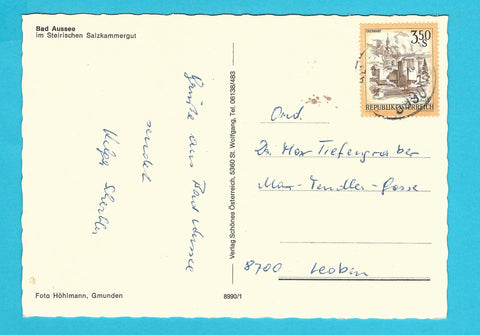 Bad Aussee
im Steirischen Salzkammergut
Grüße aus Bad Aussee
sendet
Helga
Foto Höhlmann, Gmunden
8990/1
Verlag Schönes Österreich, 5360 St. Wolfgang, Tel. 06138/483
3.50
S
OBERWART
REPUBLIK ÖSTERREICH
Ord.
Dr. Max Tiefengraber
Max-Tendler-Gasse
8700 Leoben